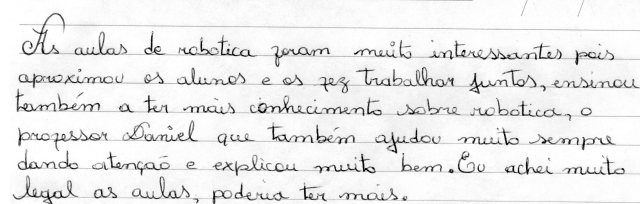 As aulas de robotica foram muito interessantes pois
aproximou os alunos e os fez trabalhar juntos, ensinou
também a ter mais conhecimento sobre robotica, o
professor Daniel que também ajudou muito sempre
dando atenção e explicou muito bem. Eu achei muito
legal as aulas, poderia ter mais.